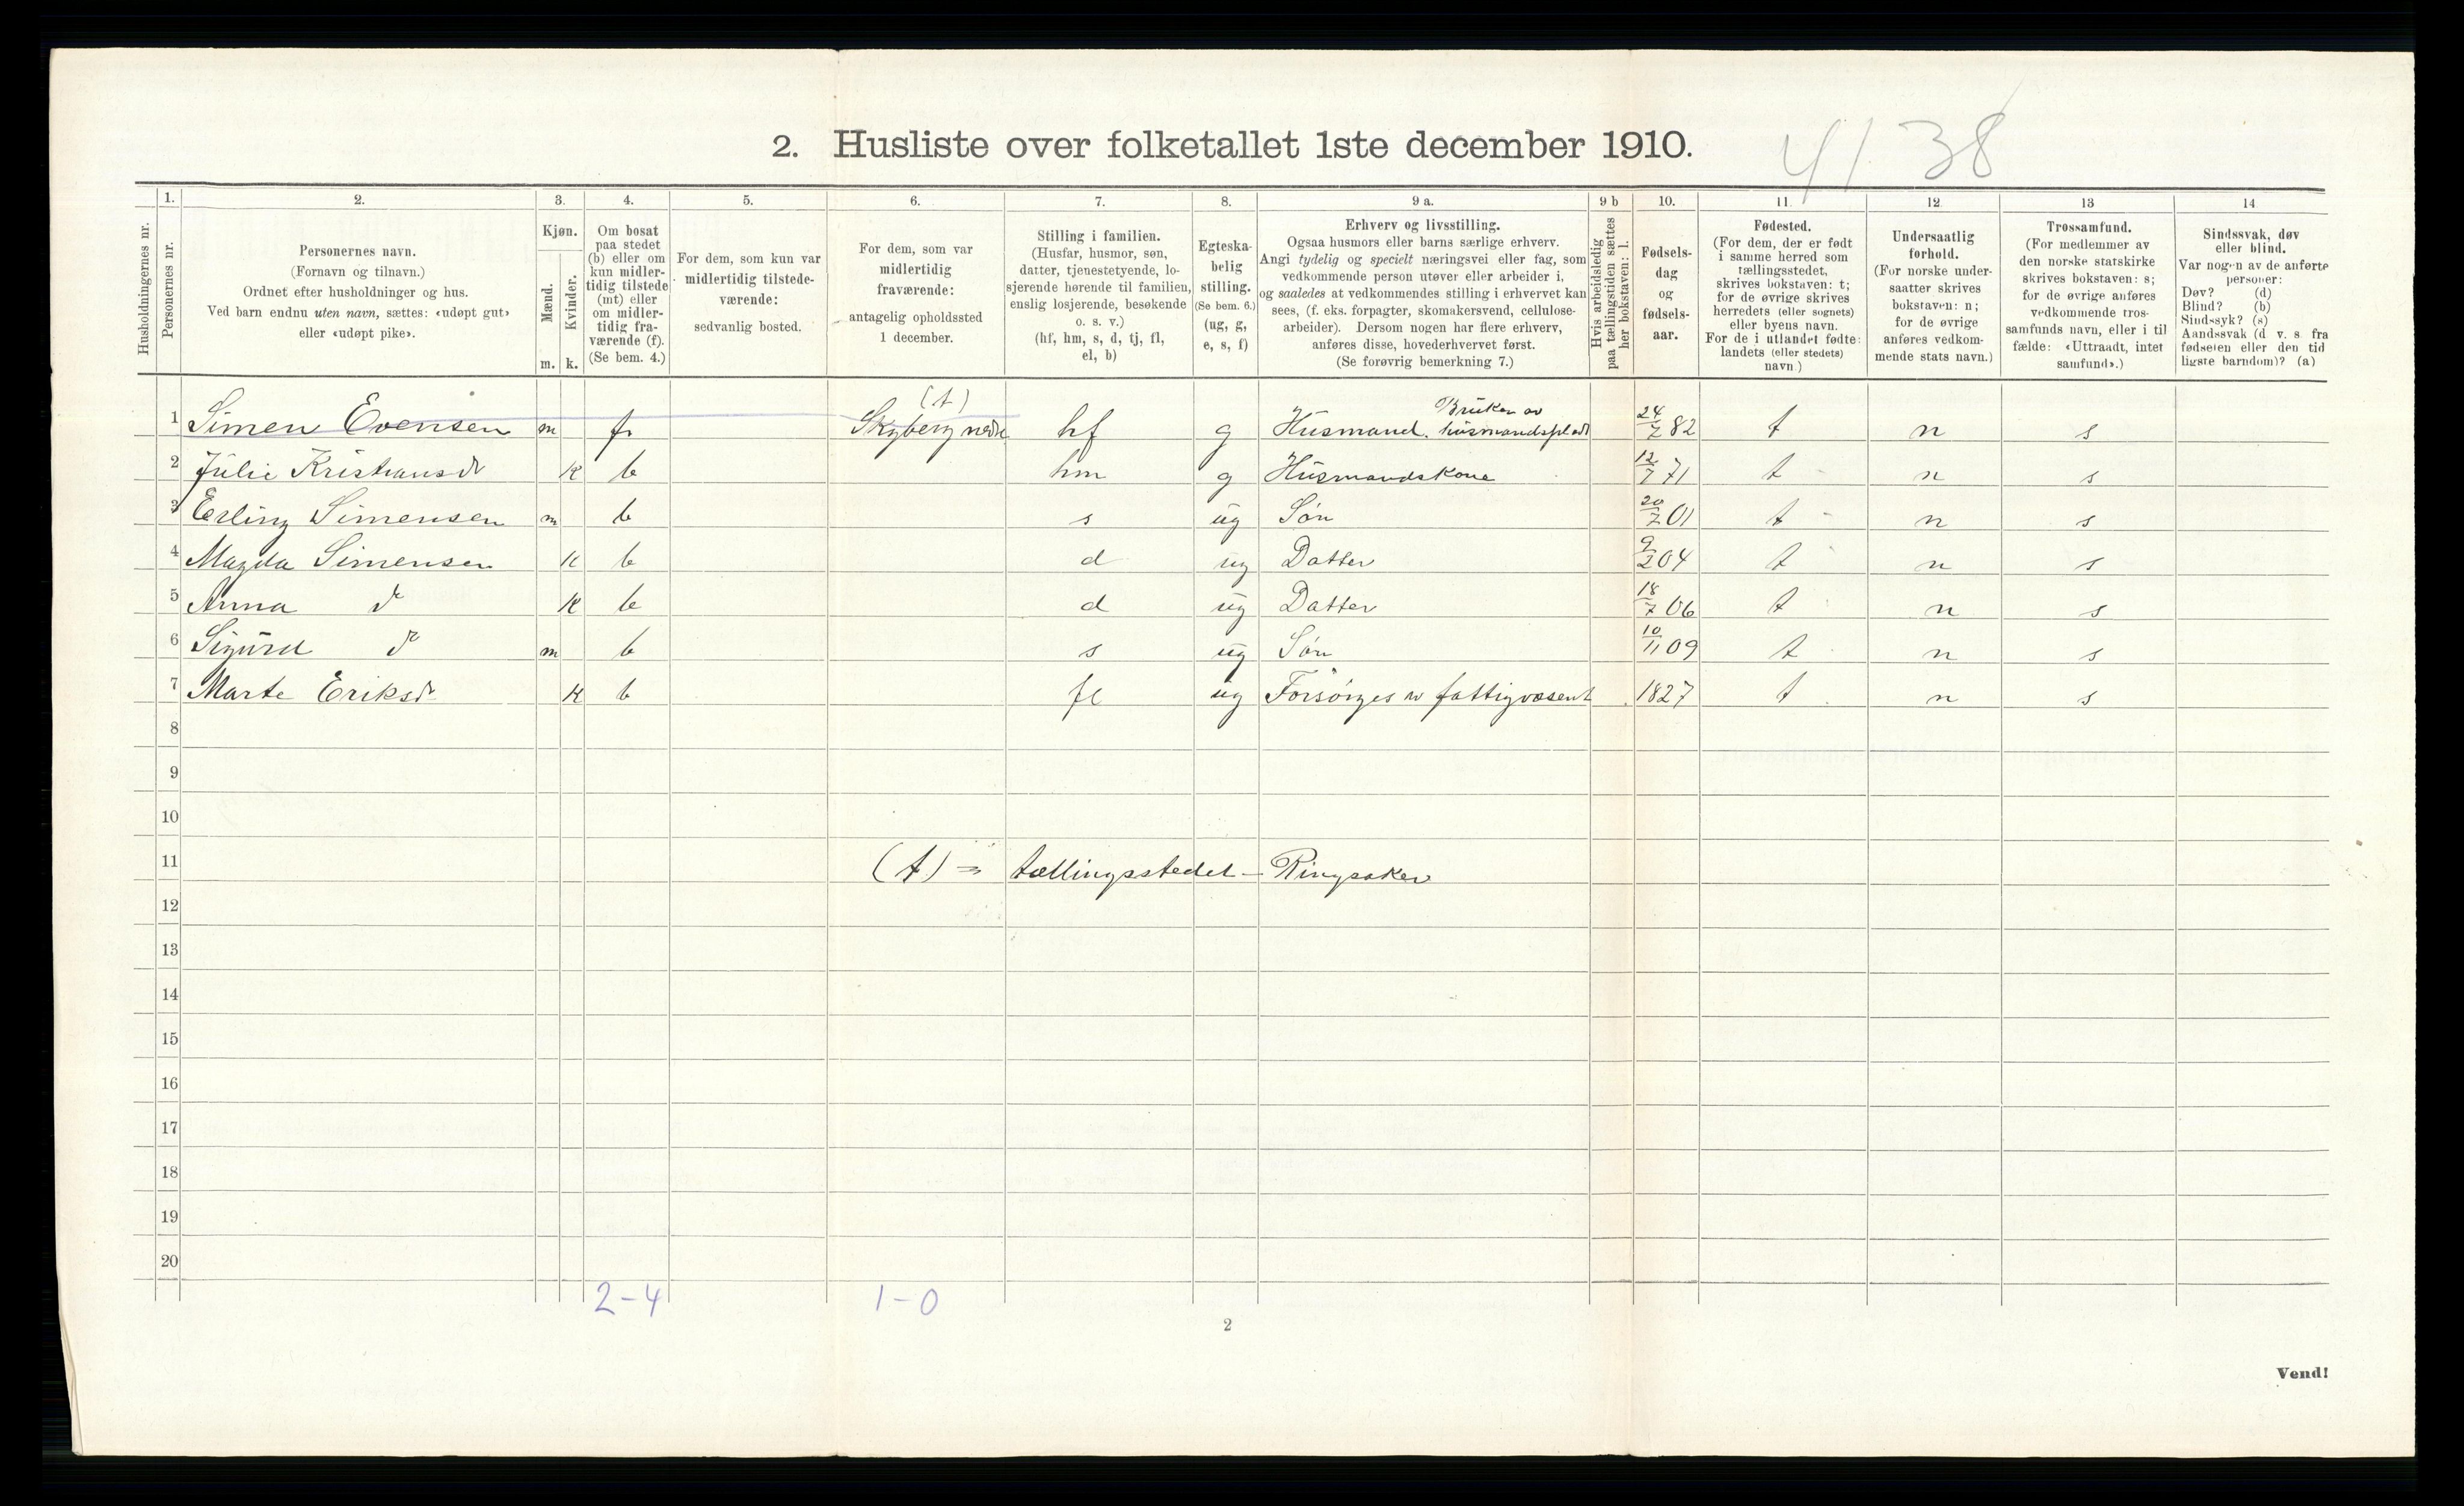 41 38
2. Husliste over folketallet 1ste december 1910.
Husholdningernes nr.
1. Personernes nr.
2. Personernes navn.
(Fornavn og tilnavn.)
Ordnet efter husholdninger og hus.
Ved barn endnu uten navn, sættes: «udøpt gut»
eller «udøpt pike».
3. Kjøn.
Mænd. m.
Kvinder. k.
4. Om bosat
paa stedet
(b) eller om
kun midler-
tidig tilstede
(mt) eller
om midler-
tidig fra-
værende (f).
(Se bem. 4.)
5. For dem, som kun var
midlertidig tilstede-
værende:
sedvanlig bosted.
6. For dem, som var
midlertidig
fraværende:
antagelig opholdssted
1 december.
7. Stilling i familien.
(Husfar, husmor, søn,
datter, tjenestetyende, lo-
sjerende hørende til familien,
enslig losjerende, besøkende
o. s. v.)
(hf, hm, s, d, tj, fl,
el, b)
8. Egteska-
belig
stilling.
(Se bem. 6.)
(ug, g,
e, s, f)
9 a. Erhverv og livsstilling.
Ogsaa husmors eller barns særlige erhverv.
Angi tydelig og specielt næringsvei eller fag, som
vedkommende person utøver eller arbeider i,
og saaledes at vedkommendes stilling i erhvervet kan
sees, (f. eks. forpagter, skomakersvend, cellulose-
arbeider). Dersom nogen har flere erhverv,
anføres disse, hovederhvervet først.
(Se forøvrig bemerkning 7.)
9 b Hvis arbeidsledig
paa tællingstiden sættes
her bokstaven: l.
10. Fødsels-
dag
og
fødsels-
aar.
11. Fødested.
(For dem, der er født
i samme herred som
tællingsstedet,
skrives bokstaven: t;
for de øvrige skrives
herredets (eller sognets)
eller byens navn.
For de i utlandet fødte:
landets (eller stedets)
navn.)
12 Undersaatlig
forhold.
(For norske under-
saatter skrives
bokstaven: n;
for de øvrige
anføres vedkom-
mende stats navn.)
13 Trossamfund.
(For medlemmer av
den norske statskirke
skrives bokstaven: s;
for de øvrige anføres
vedkommende tros-
samfunds navn, eller i til
fælde: «Uttraadt, intet
samfund».)
14 Sindssvak, døv
eller blind.
Var nogen av de anførte
personer:
Døv? (d)
Blind? (b)
Sindssyk? (s)
Aandssvak (d v. s fra
fødselen eller den tid
ligste barndom)? (a)
(t) Bruker av
1 Simen Evensen m f Skyberg nedre hf g Husmand. husmandsplads 24/7 82 t n s
2 Julie Kristiansdr k b hm g Husmandskone 12/7 71 t n s
3 Erling Simensen m b s ug Søn 20/7 01 t n s
4 Magda Simensen k b d ug Datter 9/2 04 t n s
5 Anna do k b d ug Datter 18/7 06 t n s
6 Sigurd do m b s ug Søn 10/11 09 t n s
7 Marte Eriksdr k b fl ug Forsørges av fattigvæsent 1827 t n s
8
9
10
11 (t) = tællingsstedet - Ringsaker
12
13
14
15
16
17
18
19
20
2-4 1-0
2
Vend!